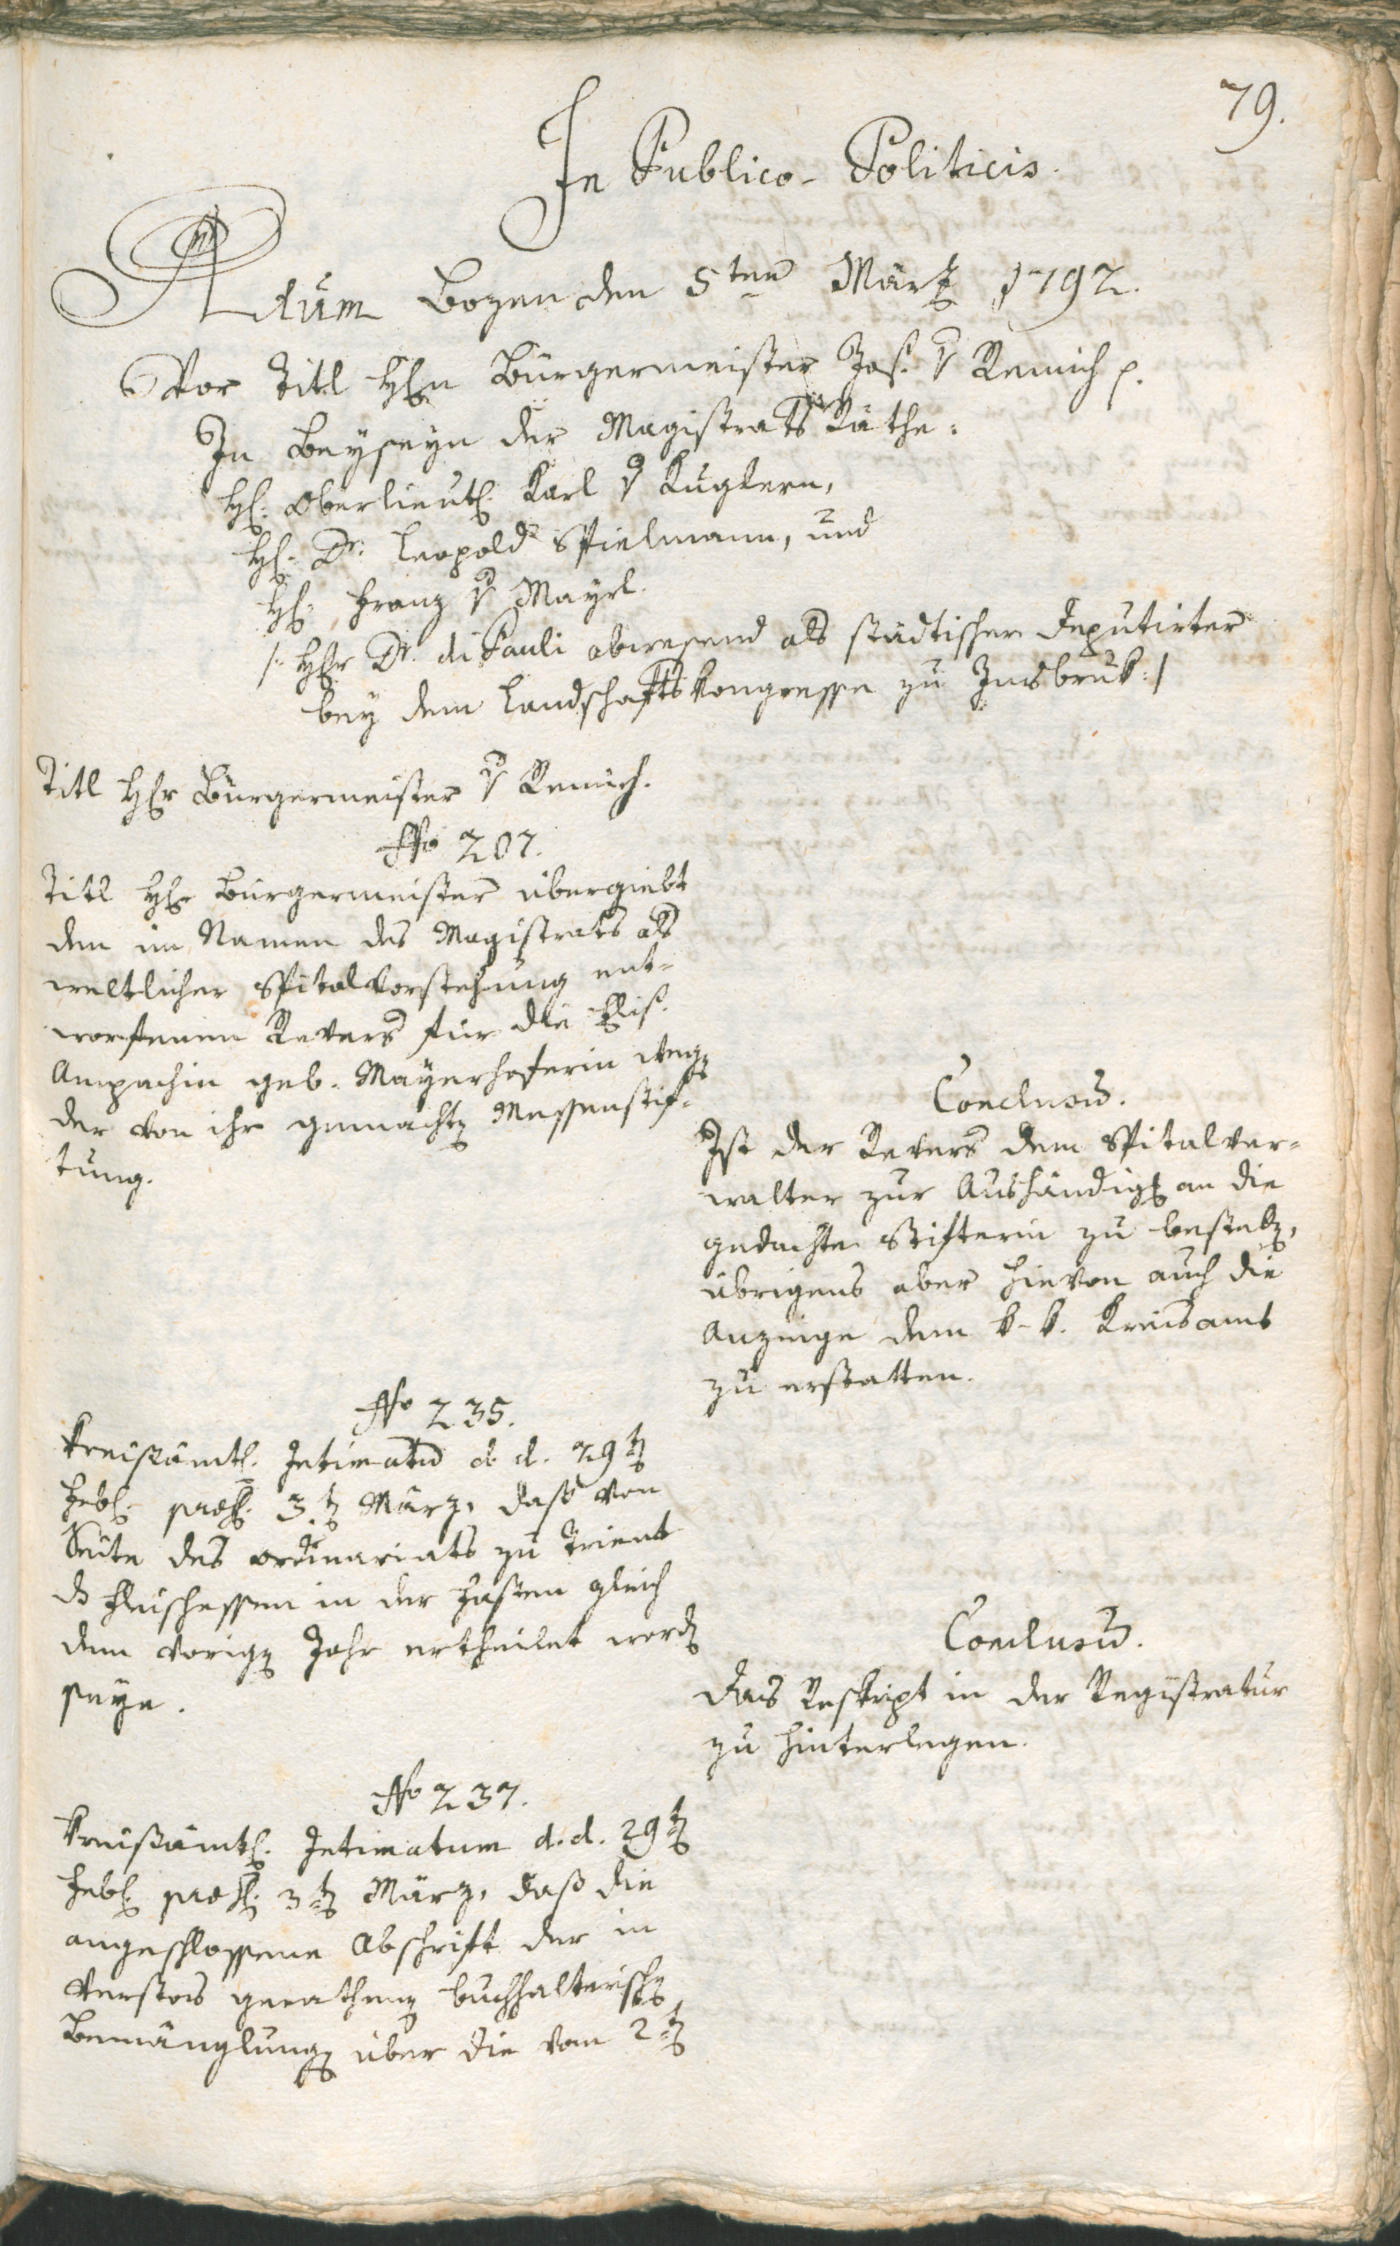 79.
In Publico-Politicis.
Actum Bozen den 5ten März 1792.
Vor Titl Hℓn Bürgermeister Jos. v Remich p.
In Beyseyn der Magistrats Räthe:
H: Oberlieut: Karl v Kuglern,
H: Dr. Leopold Spielmann, und
H: Franz v Mayrl.
/: Hℓr Dr. di Pauli abwesend als städtischer Deputirter
bey dem Landschaftskongresse zu Insbruk :/
Titl Hℓr Bürgermeister v Remich.
No 207.
Titl Hℓr Bürgermeister übergiebt
den im Namen des Magistrats als
weltlicher Spitalvorstehung ent-
worfenen Revers für die Elis.
Ampachin geb. Mayerhoferin weg
der von ihr gemacht Messenstif-
tung.
Conclusũ.
Ist der Revers dem Spitalver-
walter zur Aushändig an die
gedachte Stifterin zu
übrigens aber hievon auch die
Anzeige dem k-k. Kreisamt
zu erstatten.
No 235.
Kreisämtl. Intimatũ d. d. 29t
Febr. præs. 3.t März, daß von
Seite des Ordinariats zu Trient
ds Fleischessen in der Fasten gleich
dem vorig Jahr ertheilet word
seye.
Conclusũ.
Das Reskript in der Registratur
zu hinterlegen.
No 237.
Kreisämtl. Intimatum d. d. 29t
Febr. præs. 3t März, daß die
angeschlossene Abschrift der in
Verstos gerathen buchhalterisch
Bemänglung über die vom 2t